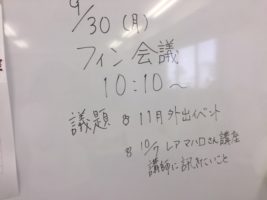 9/30（月）
フィン会議
10:10～
議題 8 11月外出イベント
8 10/7 レアマハロさん講座
講師に訊きたいこと